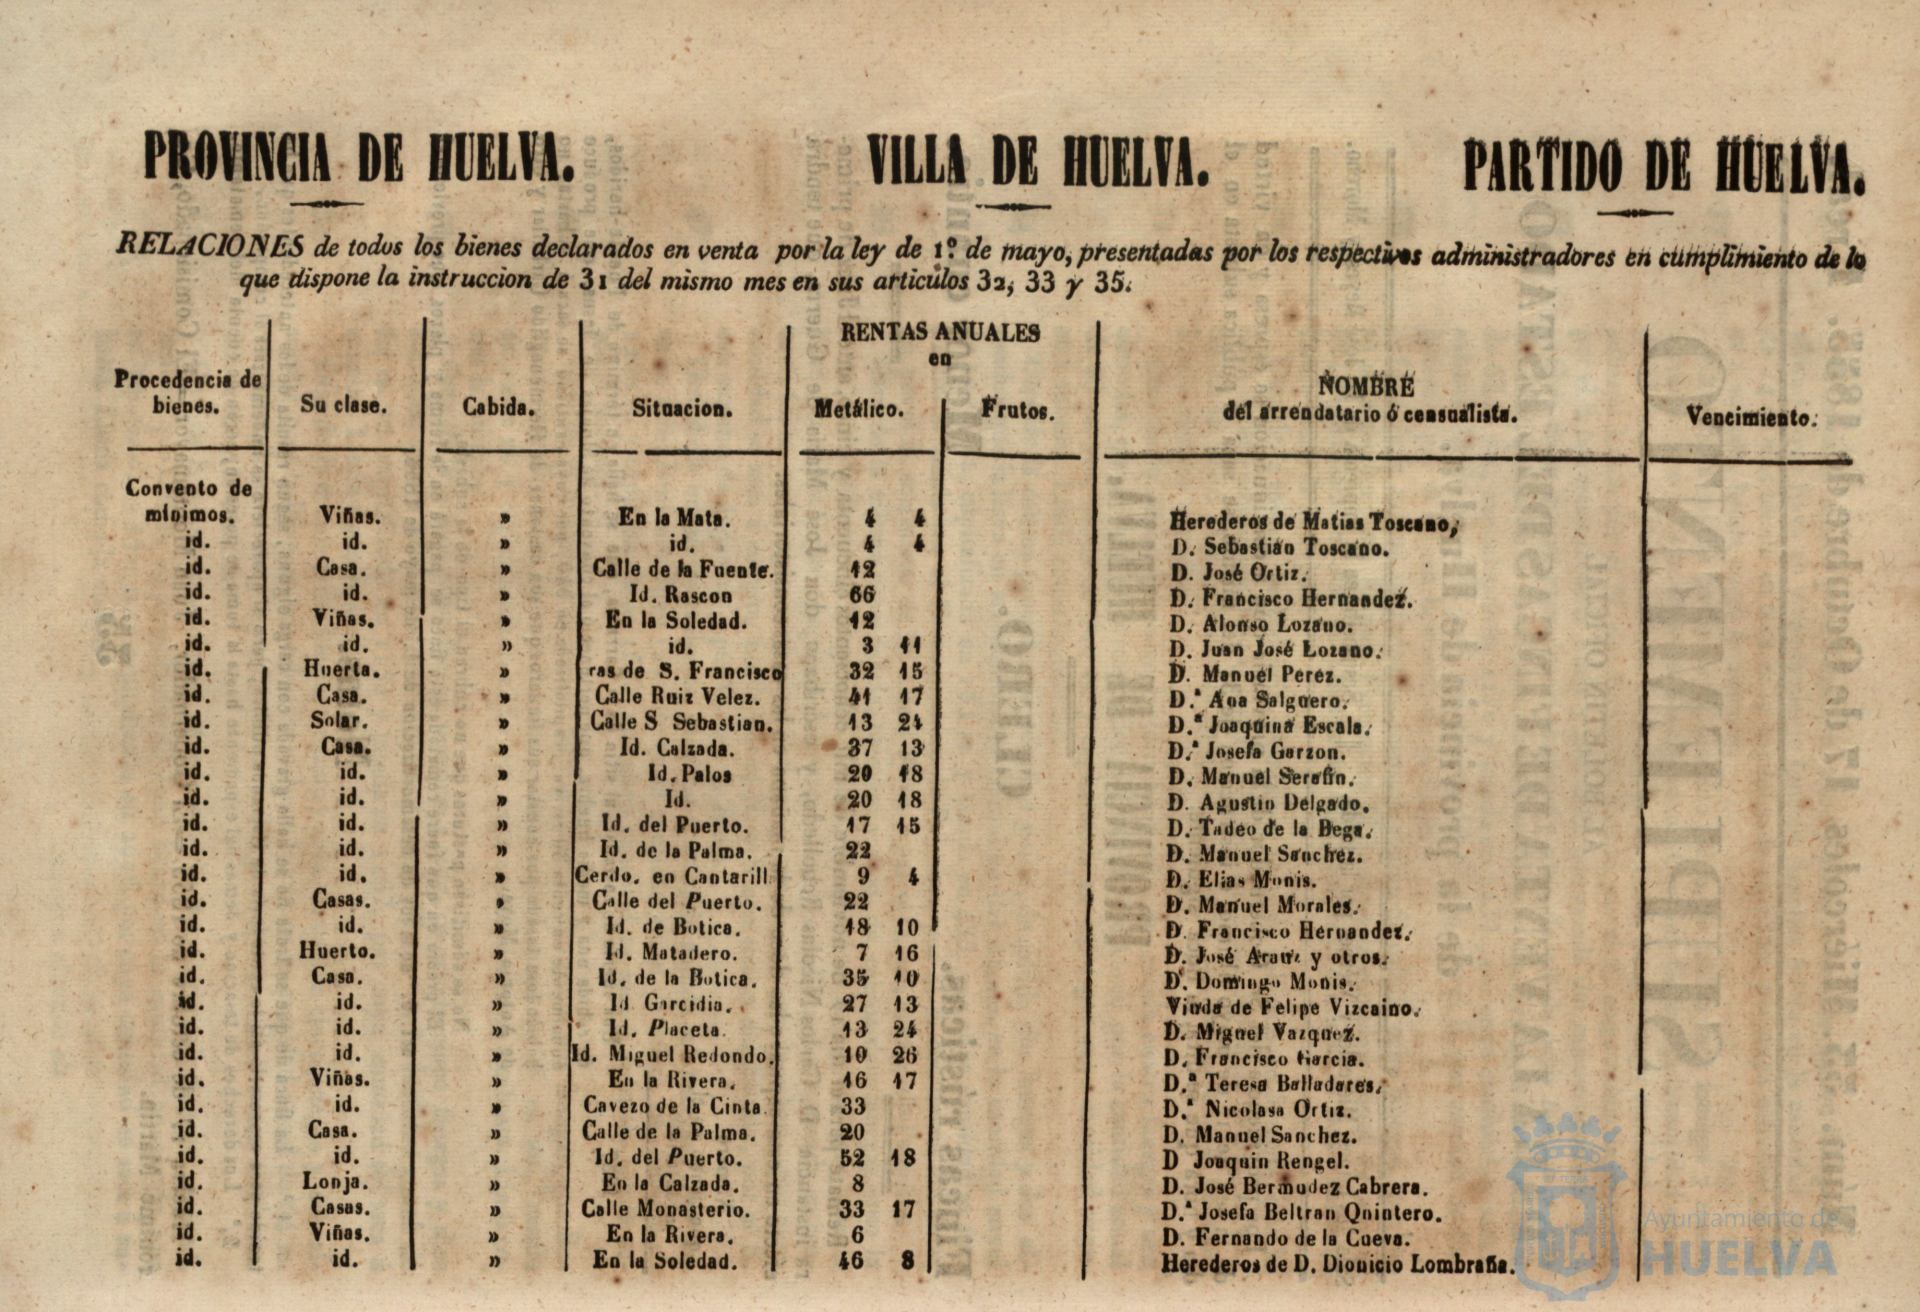 PROVINCIA DE HUELVA. VILLA DE HUELVA. PARTIDO DE HUELVA.
RELACIONES de todos los bienes declarados en venta por la ley de 1.º de mayo, presentadas por los respectivos administradores en cumplimiento de lo
que dispone la instruccion de 31 del mismo mes en sus articulos 32, 33 y 35.
RENTAS ANUALES
en
Procedencia de bienes. Su clase. Cabida. Situacion. Metálico. Frutos. NOMBRE del arrendatario ó censualista. Vencimiento.
Convento de
mínimos. Viñas. » En la Mata. 4 4 Herederos de Matias Toscano,
id. id. » id. 4 4 D. Sebastian Toscano.
id. Casa. » Calle de la Fuente. 12 D. José Ortiz.
id. id. » Id. Rascon 66 D. Francisco Hernandez.
id. Viñas. » En la Soledad. 12 D. Alonso Lozano.
id. id. » id. 3 11 D. Juan José Lozano.
id. Huerta. » ras de S. Francisco 32 15 D. Manuel Perez.
id. Casa. » Calle Ruiz Velez. 41 17 D.ª Ana Salguero.
id. Solar. » Calle S Sebastian. 13 24 D.ª Joaquina Escala.
id. Casa. » Id. Calzada. 37 13 D.ª Josefa Garzon.
id. id. » Id. Palos 20 18 D. Manuel Serafin.
id. id. » Id. 20 18 D. Agustin Delgado.
id. id. » Id. del Puerto. 17 15 D. Tadeo de la Bega.
id. id. » Id. de la Palma. 22 D. Manuel Sanchez.
id. id. » Cerdo. en Cantarill 9 4 D. Elias Monis.
id. Casas. » Calle del Puerto. 22 D. Manuel Morales.
id. id. » Id. de Botica. 18 10 D. Francisco Hernandez.
id. Huerto. » Id. Matadero. 7 16 D. José Arauz y otros.
id. Casa. » Id. de la Botica. 35 10 D. Domingo Monis.
id. id. » Id Garcidia. 27 13 Viuda de Felipe Vizcaino.
id. id. » Id. Placeta. 13 24 D. Miguel Vazquez.
id. id. » Id. Miguel Redondo. 10 26 D. Francisco Garcia.
id. Viñas. » En la Rivera. 16 17 D.ª Teresa Balladares.
id. id. » Cavezo de la Cinta. 33 D.ª Nicolasa Ortiz.
id. Casa. » Calle de la Palma. 20 D. Manuel Sanchez.
id. id. » Id. del Puerto. 52 18 D Joaquin Rengel.
id. Lonja. » En la Calzada. 8 D. José Bermudez Cabrera.
id. Casas. » Calle Monasterio. 33 17 D.ª Josefa Beltran Quintero.
id. Viñas. » En la Rivera. 6 D. Fernando de la Cueva.
id. id. » En la Soledad. 46 8 Herederos de D. Dionicio Lombraña.
Ayuntamiento de
HUELVA